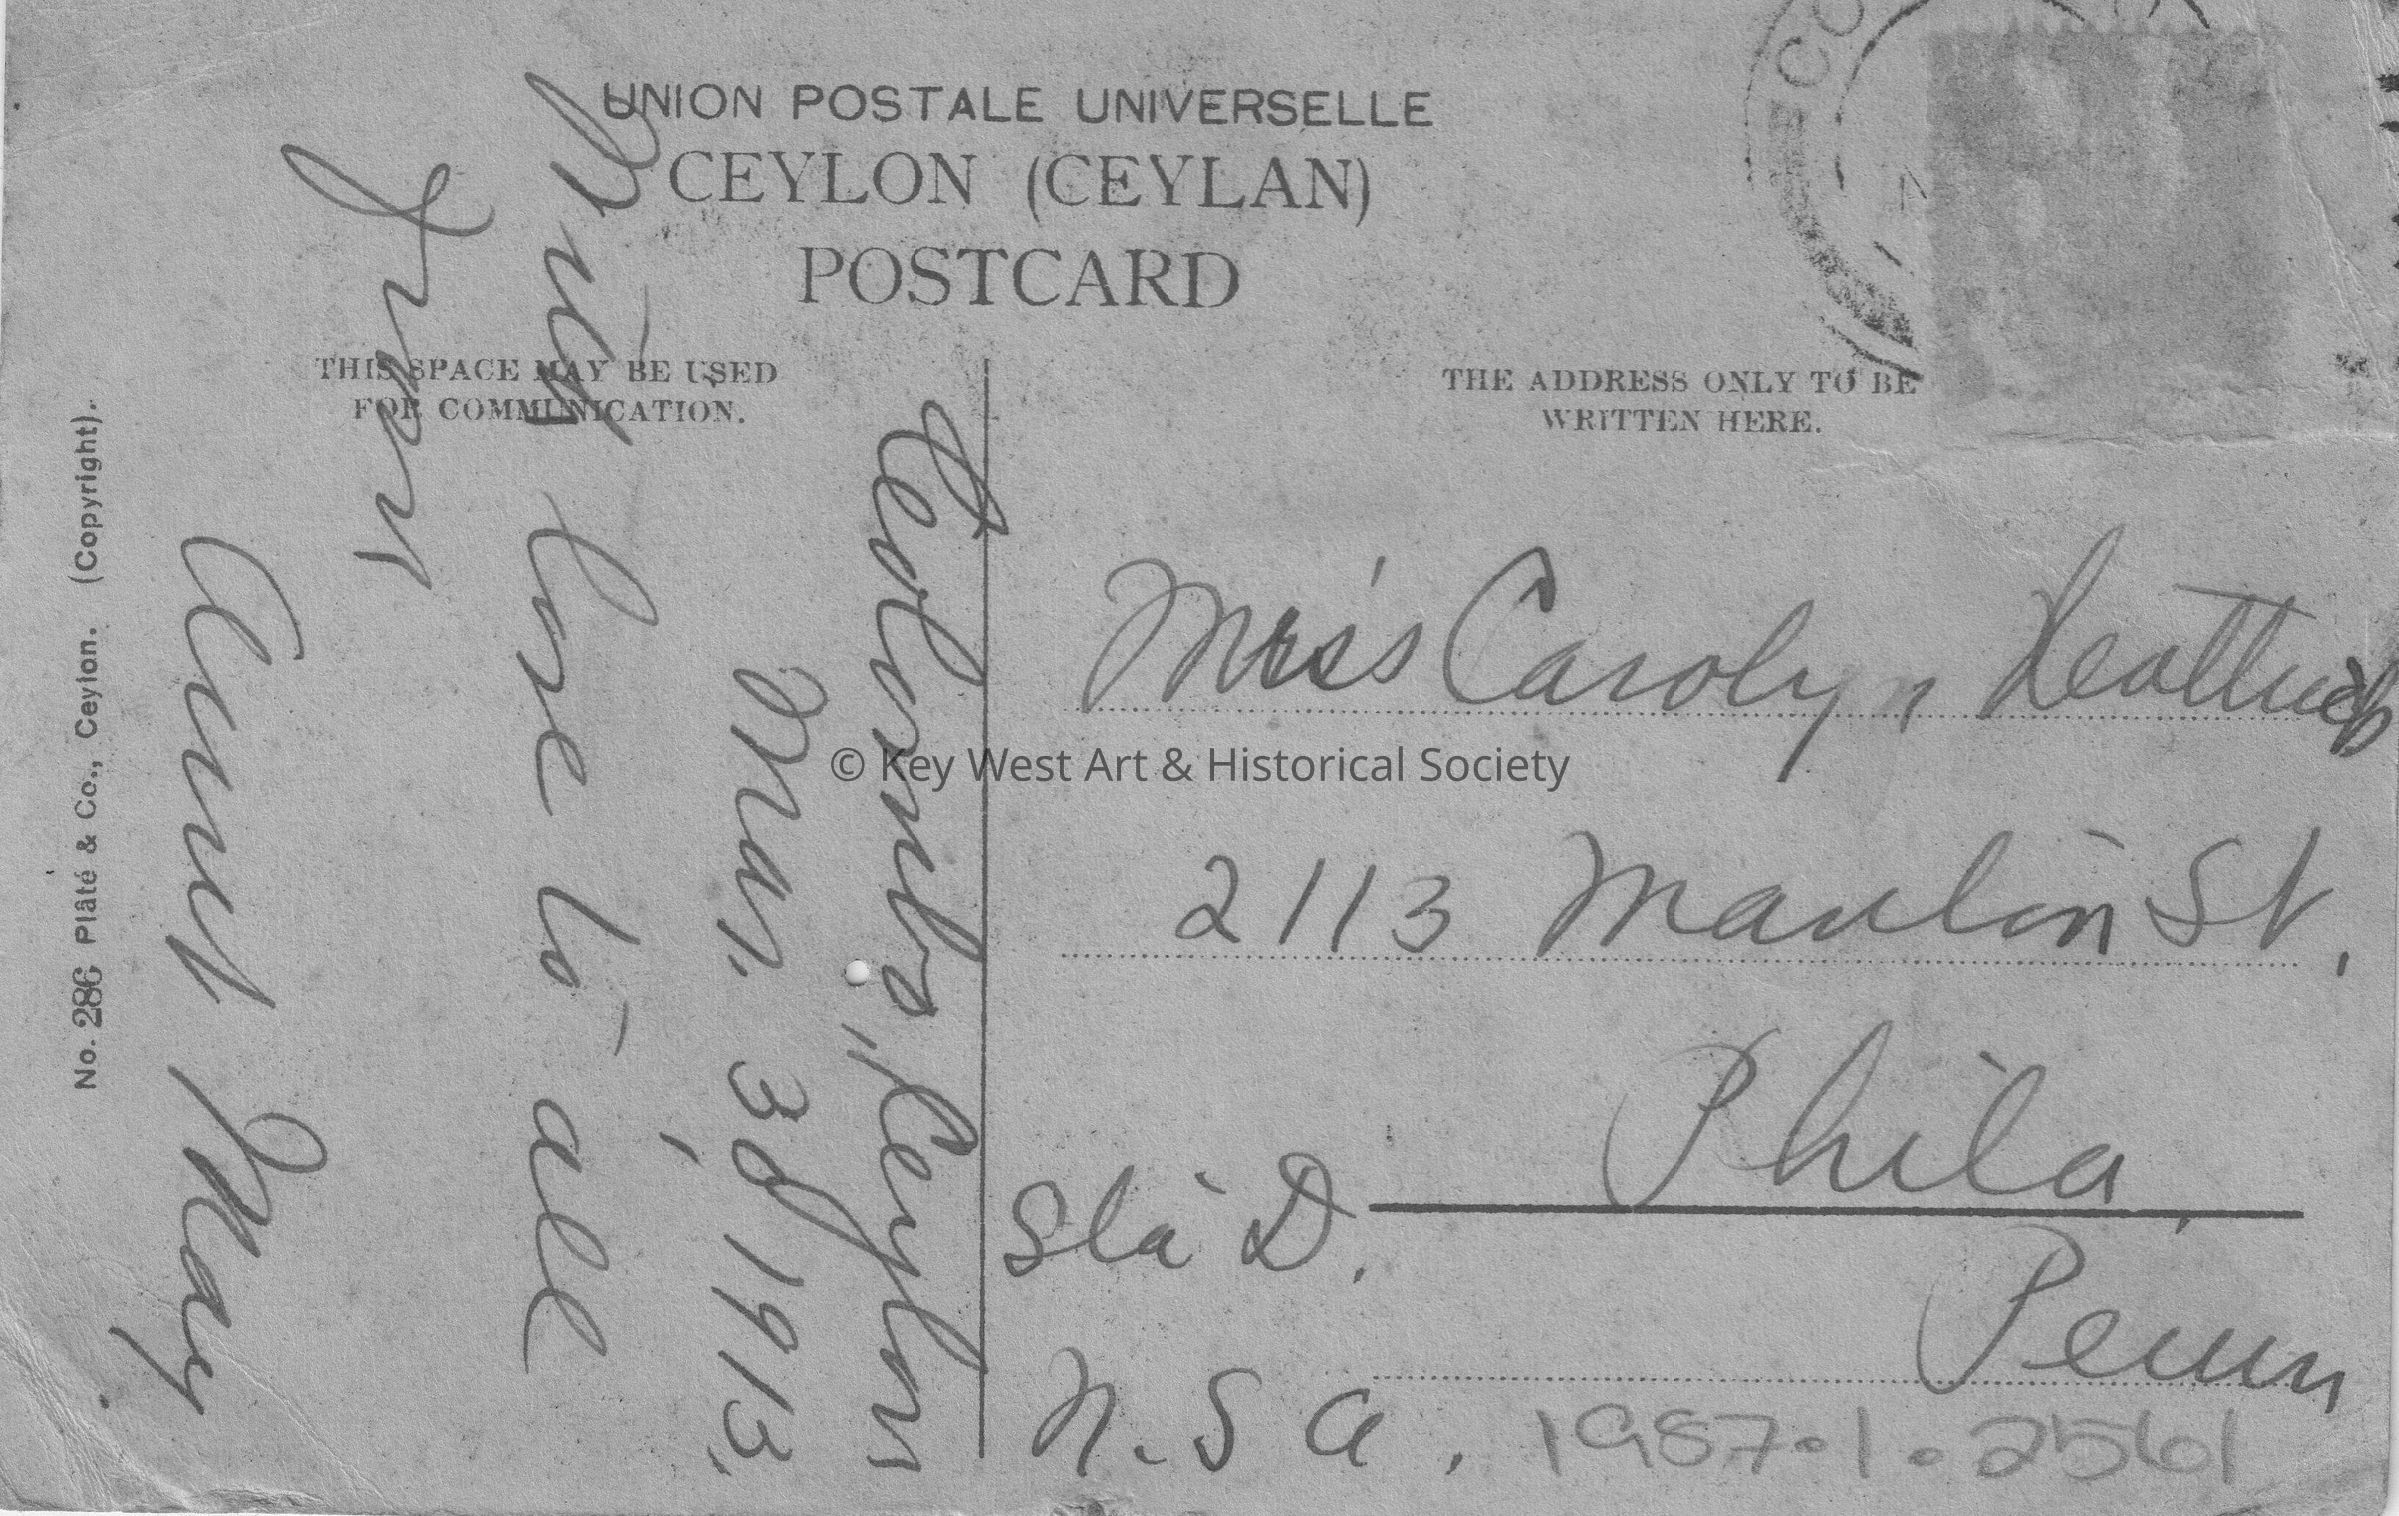 UNION POSTALE UNIVERSELLE
CEYLON (CEYLAN)
POSTCARD
THIS SPACE MAY BE USED
FOR COMMUNICATION.
THE ADDRESS ONLY TO BE
WRITTEN HERE.
No. 286 Plâté & Co., Ceylon. (Copyright).
Colombo, Ceylon
Mar. 3d, 1913.
love to all
from
Aunt May.
Carolyn
2113 St.
Phila,
Sta D.
Penn
U.S a.
1987.1.2561
© Key West Art & Historical Society